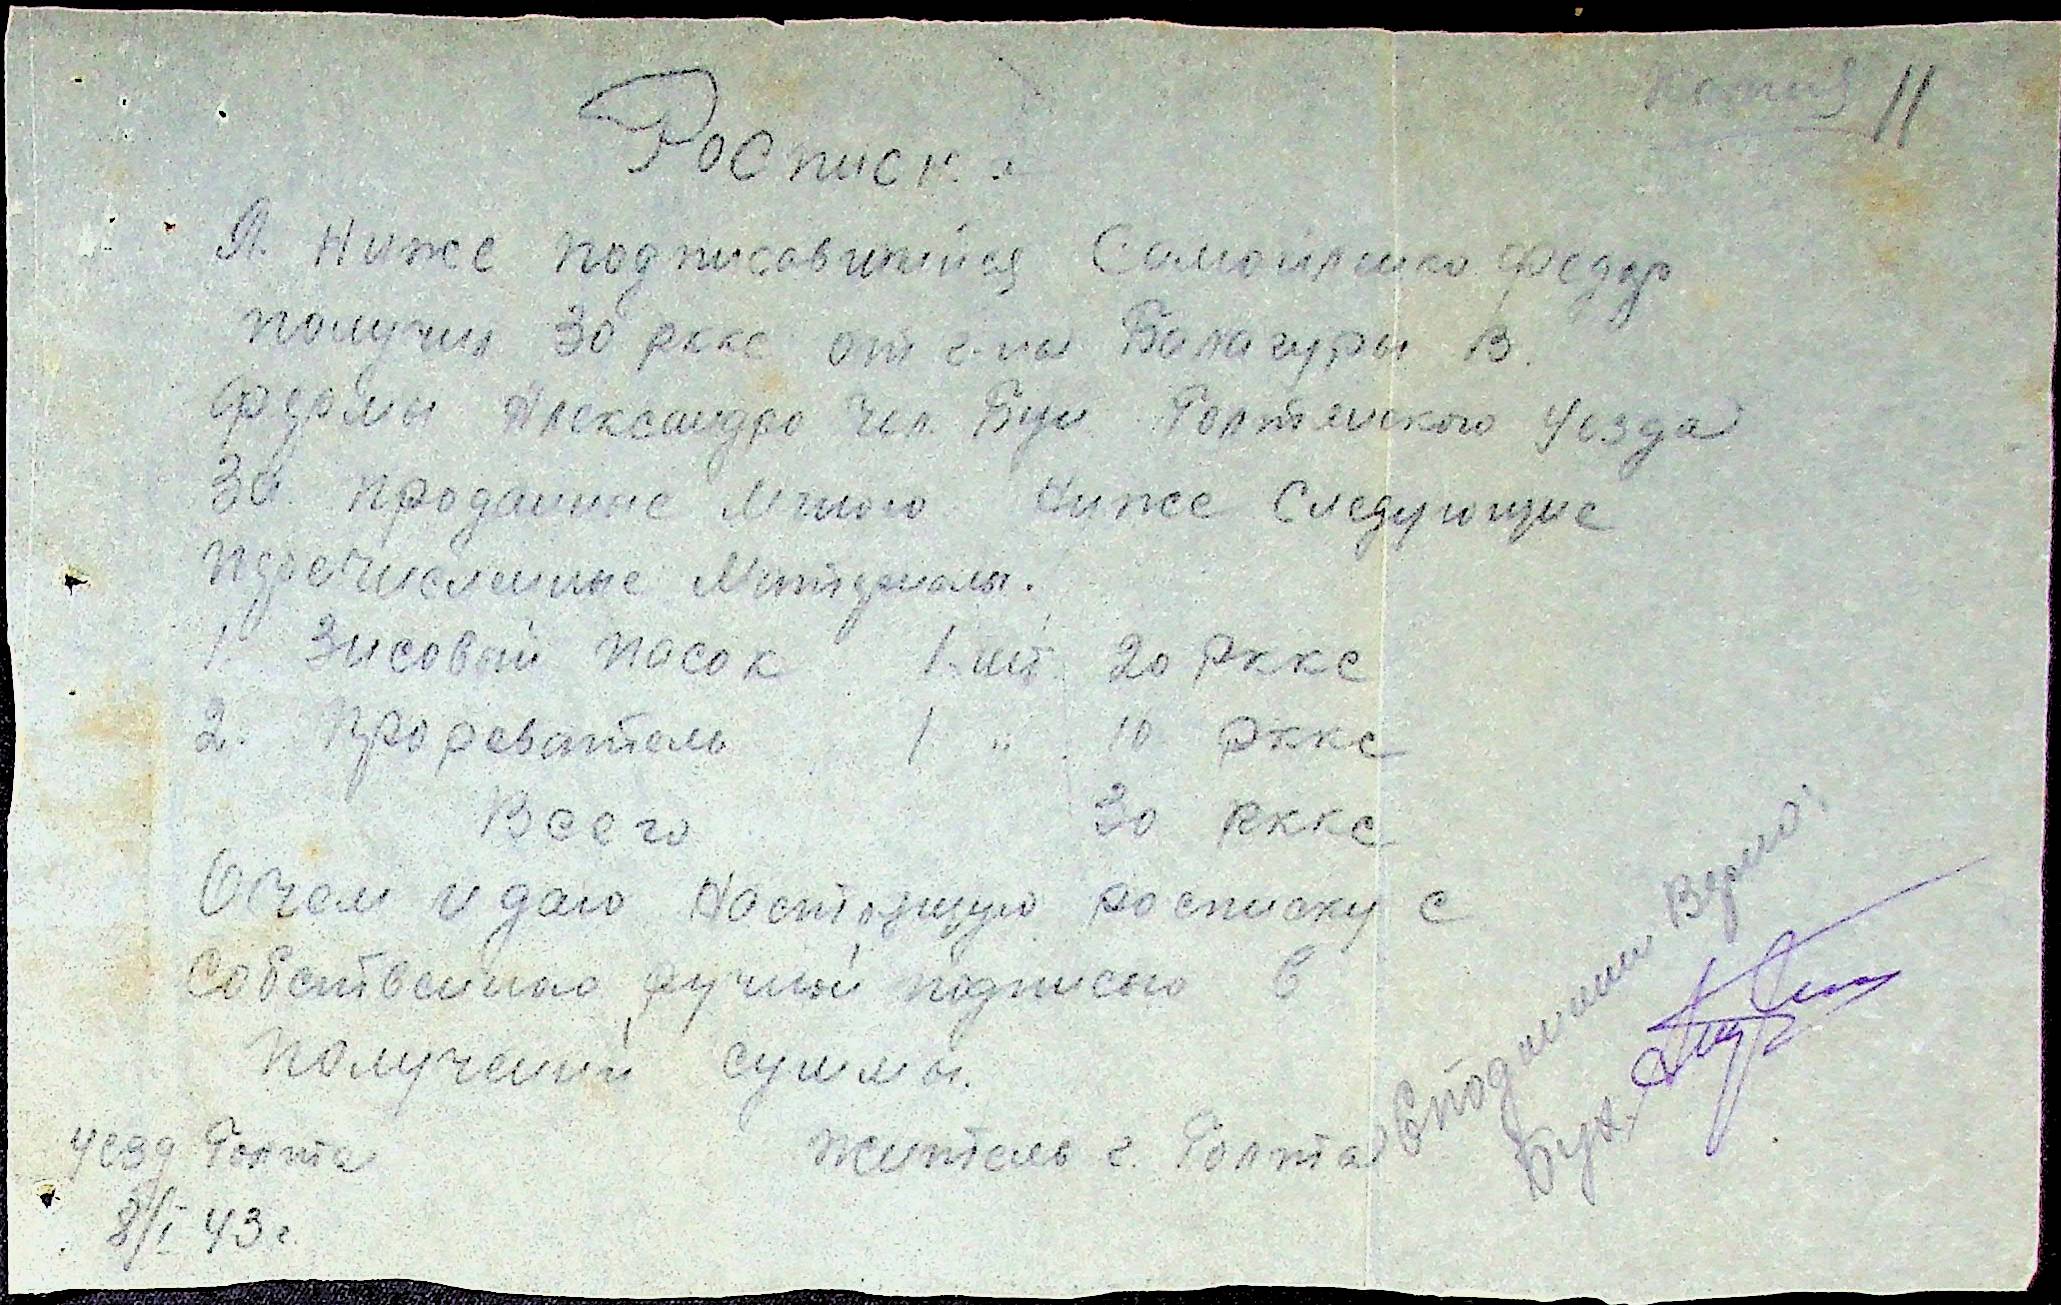 Копия 11
Росписка
Я ниже подписавшийся Самойленко Федор
получил 30 рккс от г-на Балагуры В.
фермы Александро Чел. Буи Голтянского уезда
За проданные мною ниже следующие
перечисленные материалы.
1. Зисовый насок 1 шт. 20 рккс
2. Прореватель 1 " 10 рккс
Всего 30 рккс
О чем и даю настоящую росписку с
собственно ручной подписью в
получений суммы.
уезд Голта Житель г. Голта
8/I 43 г.
С подлиным верно:
Бух.